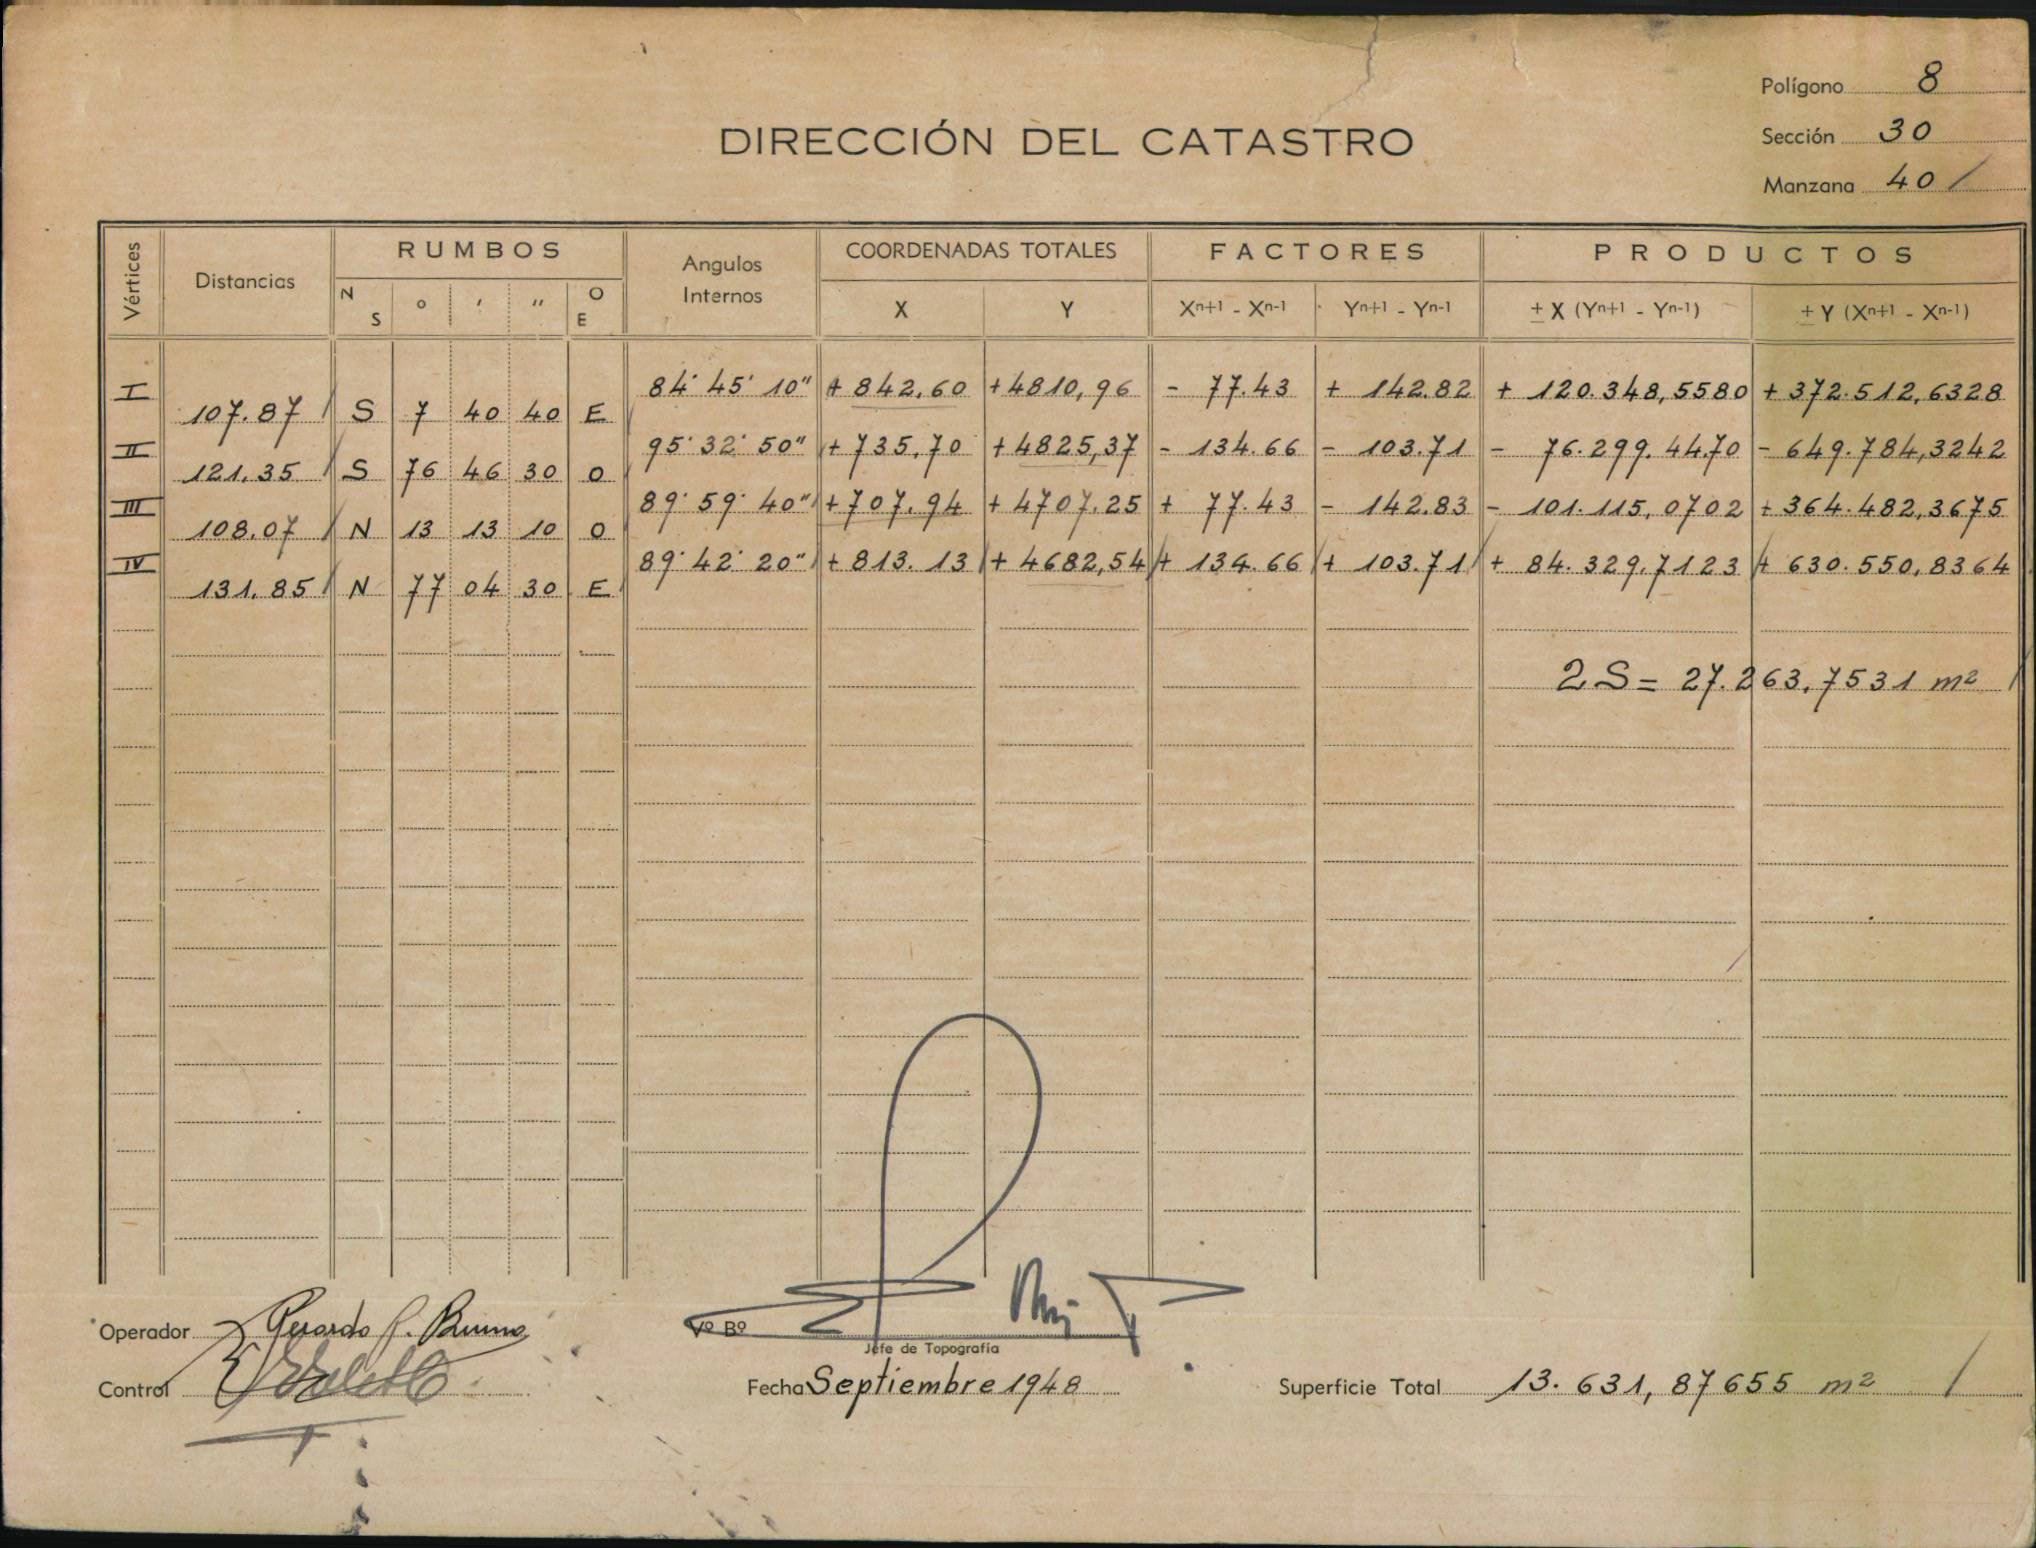 Polígono 8
DIRECCIÓN DEL CATASTRO
Sección 30
Manzana 40 /
Vértices Distancias RUMBOS Angulos Internos COORDENADAS TOTALES FACTORES PRODUCTOS
N S ° ' " O E X Y Xⁿ⁺¹ - Xⁿ⁻¹ Yⁿ⁺¹ - Yⁿ⁻¹ ± X (Yⁿ⁺¹ - Yⁿ⁻¹) ± Y (Xⁿ⁺¹ - Xⁿ⁻¹)
I 84° 45' 10" + 842,60 + 4810,96 - 77.43 + 142.82 + 120.348,5580 + 372.512,6328
107.87 S 7 40 40 E
II 95° 32' 50" + 735,70 + 4825,37 - 134.66 - 103.71 - 76.299.4470 - 649.784,3242
121.35 S 76 46 30 O
III 89° 59' 40" + 707.94 + 4707.25 + 77.43 - 142.83 - 101.115,0702 + 364.482,3675
108.07 N 13 13 10 O
IV 89° 42' 20" + 813.13 + 4682,54 + 134.66 + 103.71 + 84.329,7123 + 630.550,8364
131.85 N 77 04 30 E
2S = 27.263,7531 m²
Operador Gerardo P. Bruno
Vº Bº
Jefe de Topografía
Control
Fecha Septiembre 1948
Superficie Total 13.631,87655 m² /